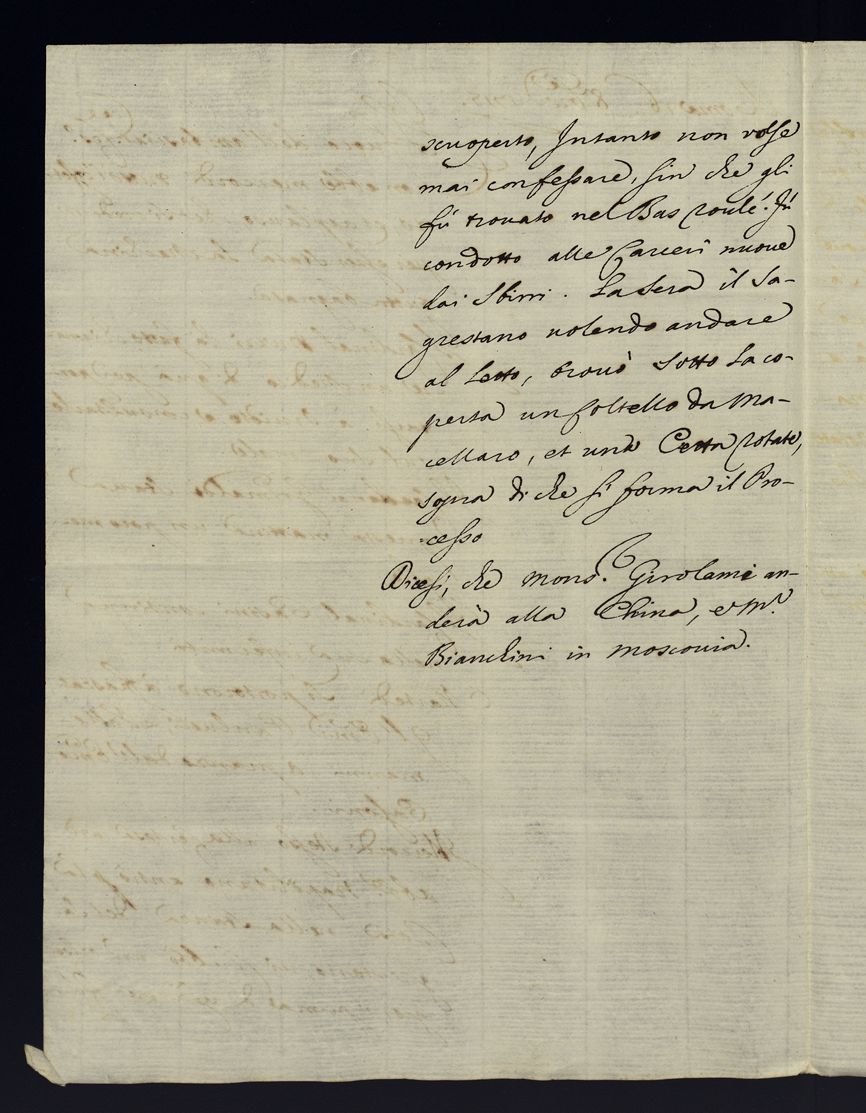 scuoperto, Intanto non volse
mai confessare, sin che gli
fù trouato nel Bas roulé. Fù
condotto alle Carceri nuoue
dai Sbirri. La sera il Sa-
grestano uolendo andare
al Letto, trouò sotto la co-
perta un Coltello da Ma-
cellaro, et una Cetta rotate,
sopra di che si forma il Pro-
-cesso
Dicesi, che Mons.r Girolami an-
derà alla China, e M.r
Bianchini in Moscouia.